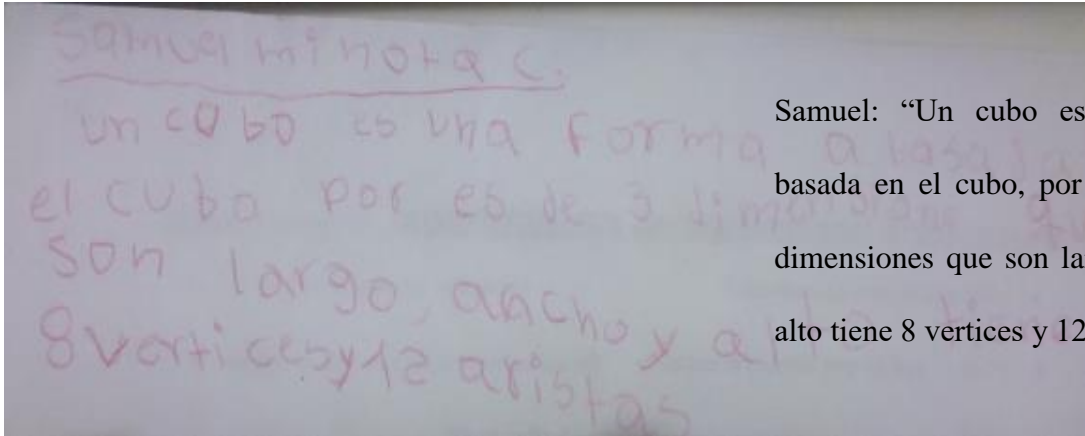 Samuel minota C.
un cubo es una forma a basada
el cubo por es de 3
son largo, ancho y alto
8 vertices y 12 aristas
Samuel: “Un cubo es
basada en el cubo, por
dimensiones que son la
alto tiene 8 vertices y 12